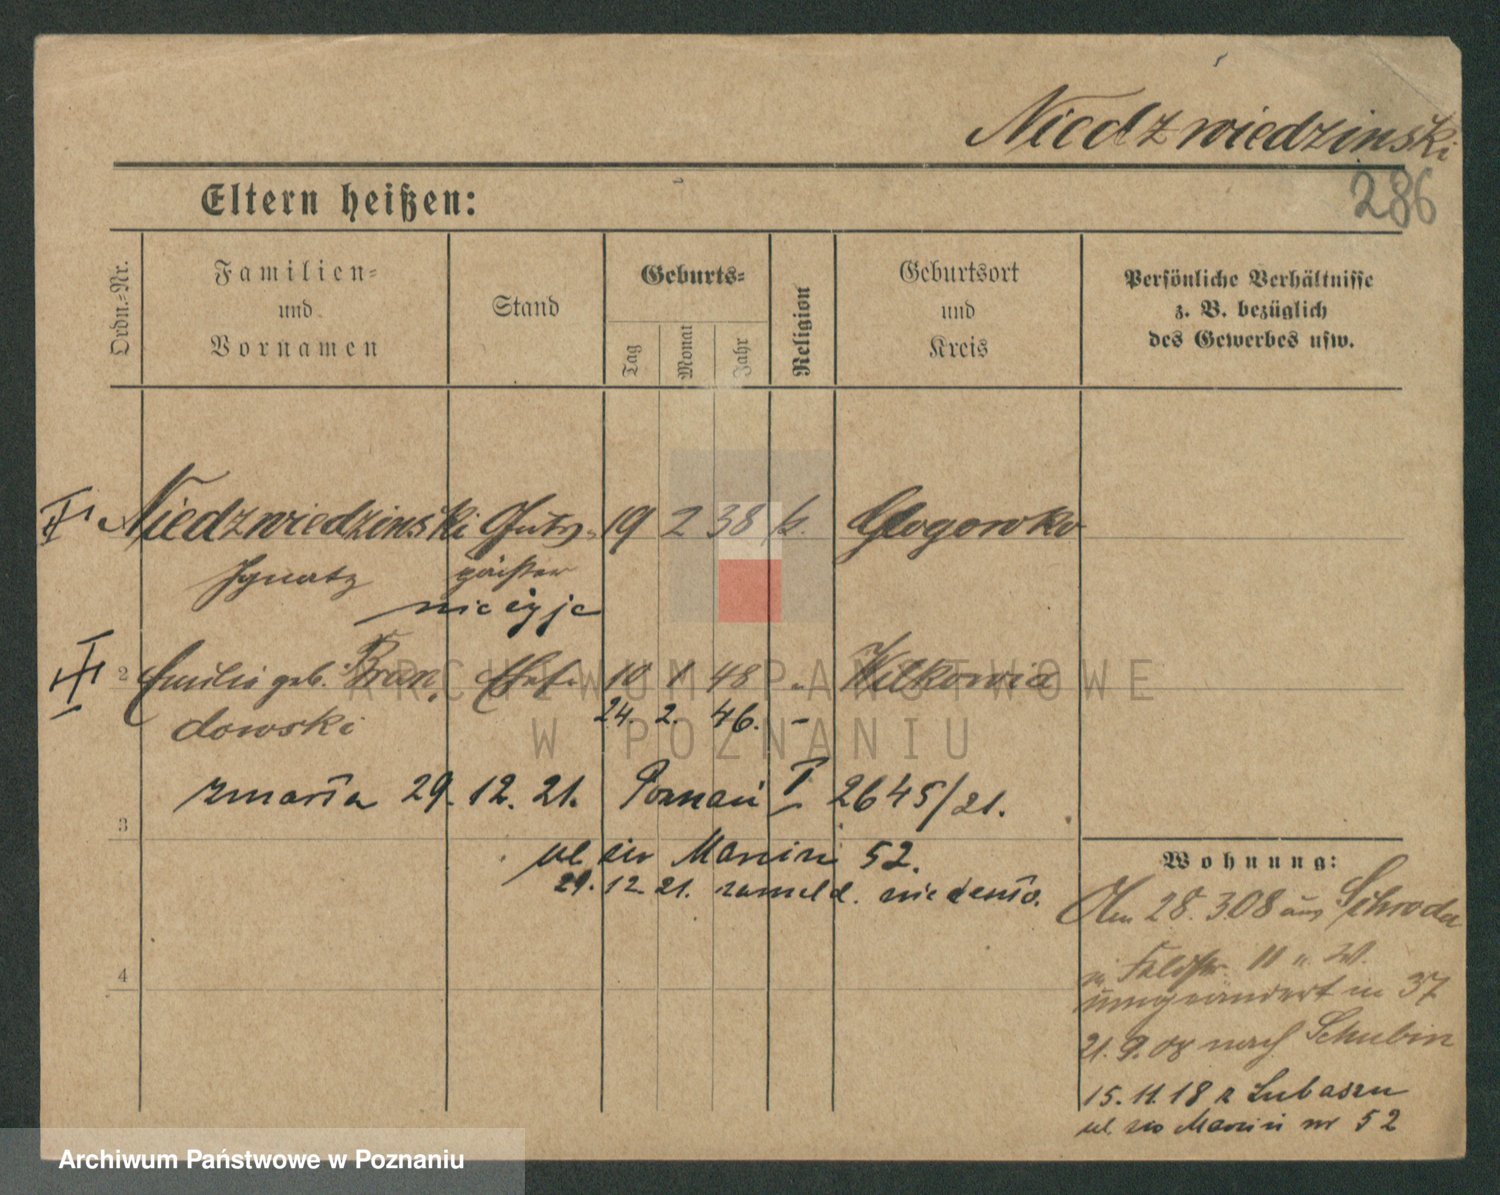 Niedzwiedzinski
286
Eltern heißen:
Ordn.-Nr.
Familien-
und
Vornamen
Stand
Geburts-
Tag
Monat
Jahr
Religion
Geburtsort
und
Kreis
Persönliche Verhältnisse
z. B. bezüglich
des Gewerbes usw.
Niedzwiedzinski Guts- 19 2 38 k. Glogowko
Ignatz pächter
nie żyje
2 Emilie geb. Bran- Ehef. 10 1 48 " Wilkowia
dowski 24. 2. 46. -
zmarła 29. 12. 21. Poznań I 2645/21.
3
ul św Marcin 52.
29. 12 21. zameld.
4
Wohnung:
Am 28. 3 08 aus Schroda
in Feldstr. 11 u. W.
umgeändert in 37
21. 9. 08 nach Schubin
15. 11. 18 z Lubaszu
ul. św Marcin nr 52
ARCHIWUM PAŃSTWOWE
W POZNANIU
Archiwum Państwowe w Poznaniu